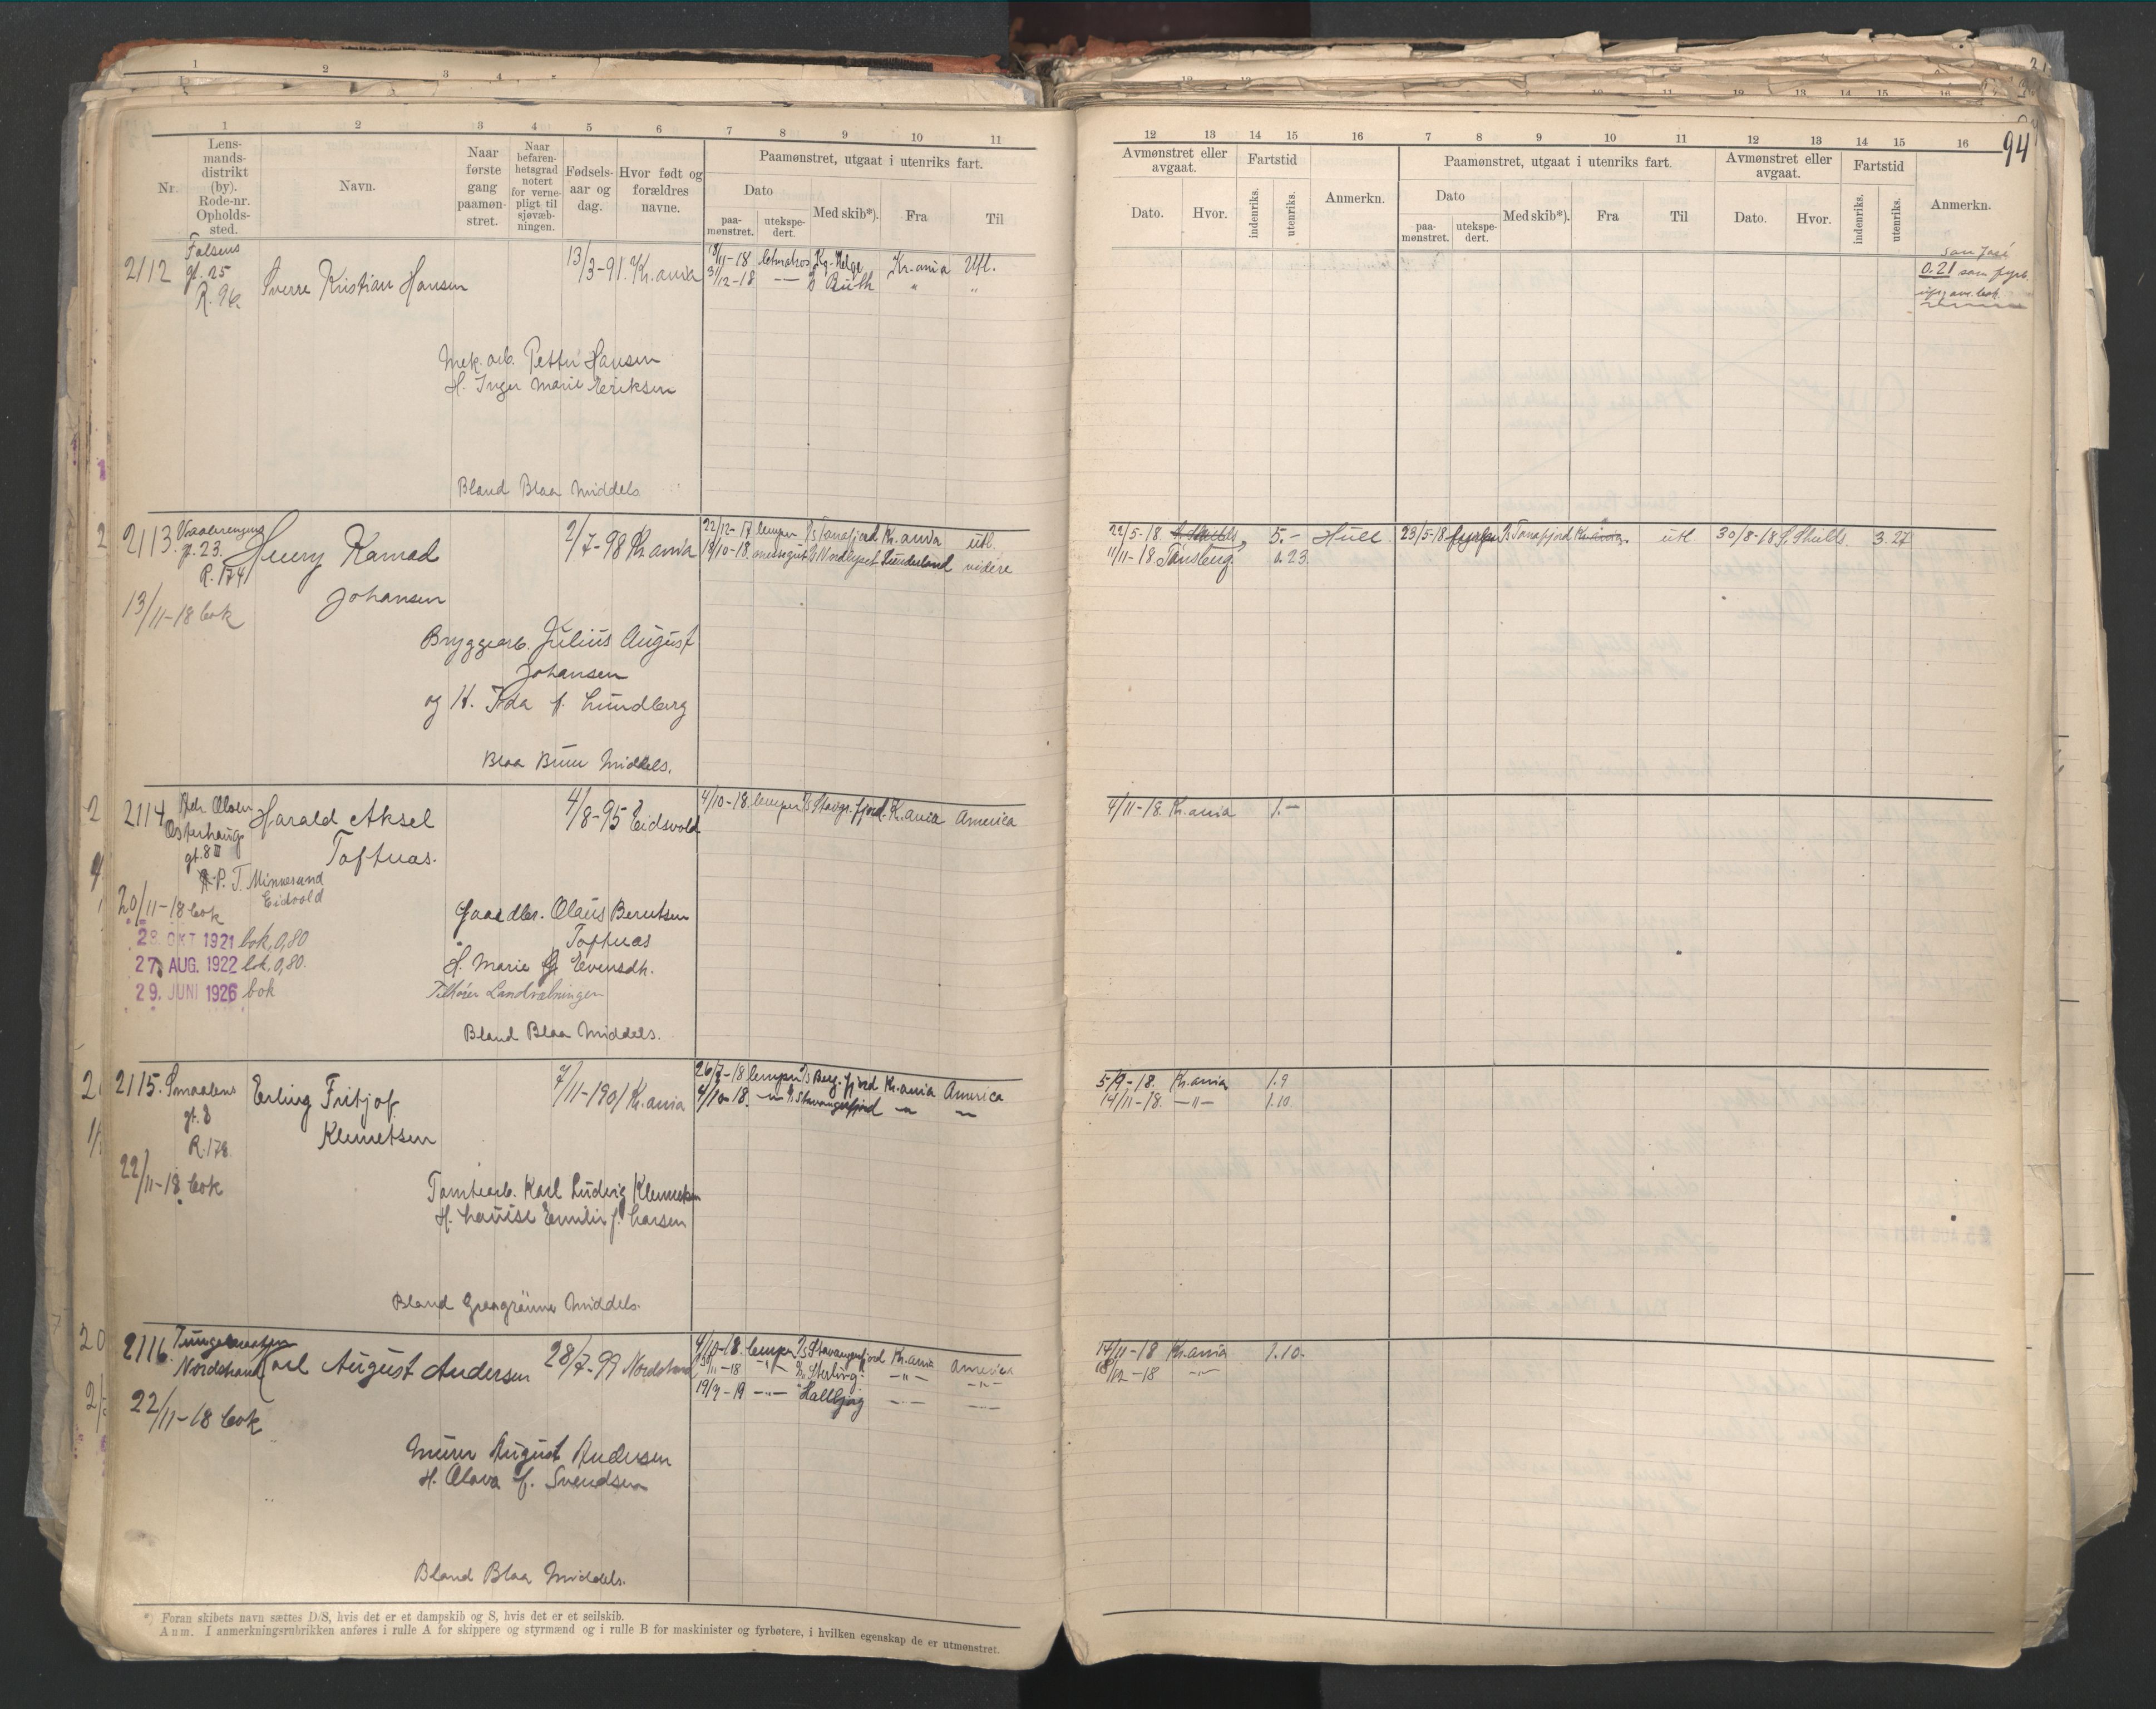 94
1 2 3 4 5 6 7 8 9 10 11
Nr.
Lens-
mands-
distrikt
(by).
Rode-nr.
Opholds-
sted.
Navn.
Naar
første
gang
paamøn-
stret.
Naar
befaren-
hetsgrad
notert
for verne-
pligt til
sjøvæb-
ningen.
Fødsels-
aar og
dag.
Hvor født og
forældres
navne.
Paamønstret, utgaat i utenriks fart.
Dato
paa-
mønstret.
utekspe-
dert.
Med skib*).
Fra
Til
12 13 14 15 16 7 8 9 10 11 12 13 14 15 16
Avmønstret eller
avgaat.
Dato. Hvor.
Fartstid
indenriks.
utenriks.
Anmerkn.
Paamønstret, utgaat i utenriks fart.
Dato
paa-
mønstret.
utekspe-
dert.
Med skib*).
Fra
Til
Avmønstret eller
avgaat.
Dato. Hvor.
Fartstid
indenriks.
utenriks.
Anmerkn.
2112
Falsens
gt. 25
R. 96.
Sverre Kristian Hansen
13/3-91. Kr.ania
18/11-18 letmatros Kg. Helge Kr.ania Utl.
31/12-18 -"- Ruth " "
San José
0.21 som fyrb.
Mek. arb. Petter Hansen
H. Inger Marie Eriksen
Bland Blaa Middels
2113.
Vaalerengens
gt. 23.
R. 174
13/11-18 bok
Henry Konrad
Johansen
2/7-98 Kr.ania
22/12-17 lemper D/S Tanafjord Kr.ania utl.
Sunderland videre
22/5-18. 5.- Hull 23/5-18 D/S Tanafjord Kr.ania utl 30/8-18 S. Shields. 3.27
11/11-18 Tønsberg. 0.23.
Bryggearb. Julius August
Johansen
og H. Ida f. Lundberg
Blaa Brun Middels.
2114
Adr. Olsen
Osterhaugs
gt. 8 III
P. T. Minnesund
Eidsvold
20/11-18 bok
28. OKT 1921 bok, 0,80
27. AUG. 1922 bok, 0,80.
29. JUNI 1926 bok
Harald Aksel
Toftnæs.
4/8-95 Eidsvold
4/10-18. lemper D/S Stavgr.fjord. Kr.ania America
4/11-18. Kr.ania 1.-
Gaardbr. Olaus Berntsen
Toftnæs
H. Marie Evensdt.
Tilhører Landvæbningen
Bland Blaa Middels.
2115.
Smaalens
gt. 8
R. 178.
22/11-18 bok
Erling Fritjof
Klemetsen
7/11-1901 Kr.ania
26/7-18 lemper D/S Berg.fjord Kr.ania America
4/10-18. -"- D/S Stavangerfjord -"- -"-
5/9-18. Kr.ania 1.9
14/11-18. -"- 1.10.
Tomtearb. Karl Ludvig Klemetsen
H. Louise Emilie f. Larsen
Bland Graagrønne Middels.
2116.
Nordstrand
22/11-18 bok
Karl August Andersen
28/7-99 Nordstrand
4/10-18. lemper D/S Stavangerfjord Kr.ania America
30/11-18 -"- D/S Sterling -"- -"-
19/3-19 -"- Hallbjørg -"- -"-
14/11-18 Kr.ania 1.10.
18/12-18 -"-
Murer August Andersen
H. Olava f. Svendsen
Bland Blaa Middels.
*) Foran skibets navn sættes D/S, hvis det er et dampskib og S, hvis det er et seilskib.
Anm. I anmerkningsrubrikken anføres i rulle A for skippere og styrmænd og i rulle B for maskinister og fyrbøtere, i hvilken egenskap de er utmønstret.